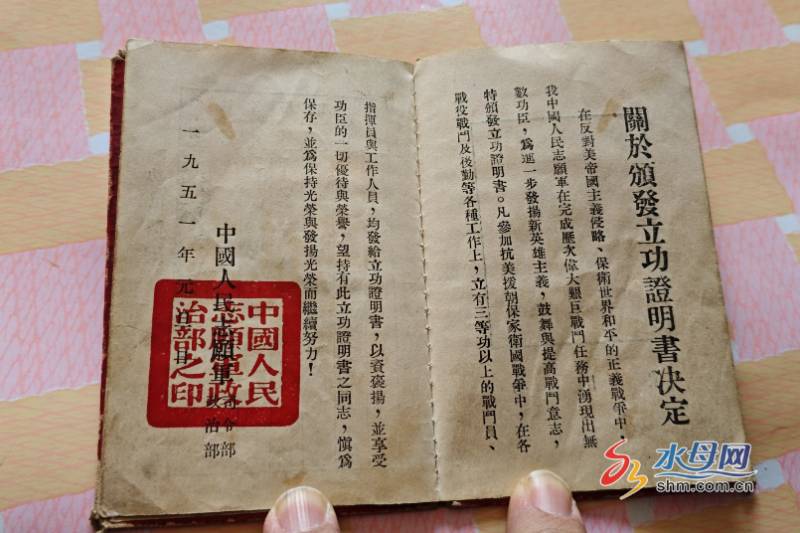 關於頒發立功證明書決定
在反對美帝國主義侵略、保衛世界和平的正義戰爭中，
我中國人民志願軍在完成歷次偉大艱巨戰鬥任務中湧現出無
數功臣，爲進一步發揚新英雄主義，鼓舞與提高戰鬥意志，
特頒發立功證明書。凡參加抗美援朝保家衛國戰爭中，在各
戰役戰鬥及後勤等各種工作上，立有三等功以上的戰鬥員、
指揮員與工作人員，均發給立功證明書，以資褒揚，並享受
功臣的一切優待與榮譽，望持有此立功證明書之同志，愼爲
保存，並爲保持光榮與發揚光榮而繼續努力！
中國人民志願軍
司令部
政治部
一九五一年元月
中國人民
志願軍政
治部之印
水母网
shm.com.cn